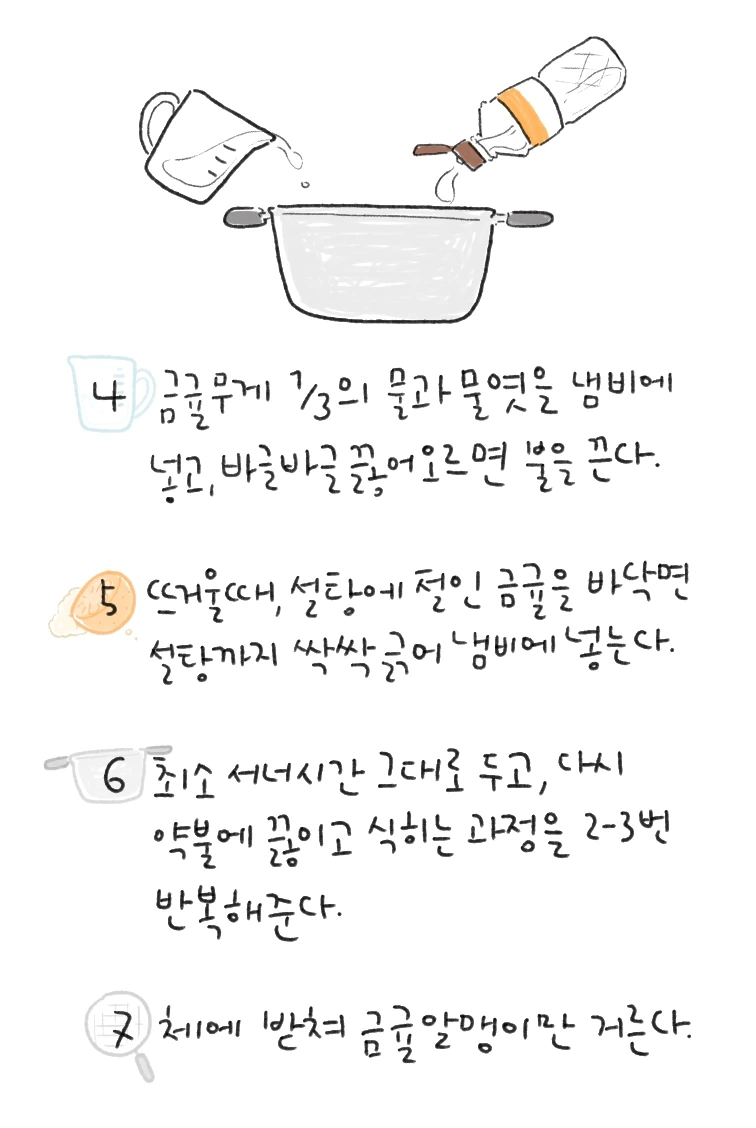 4 금귤무게 1/3의 물과 물엿을 냄비에
넣고, 바글바글 끓어오르면 불을 끈다.
5 뜨거울때, 설탕에 절인 금귤을 바닥면
설탕까지 싹싹 긁어 냄비에 넣는다.
6 최소 서너시간 그대로 두고, 다시
약불에 끓이고 식히는 과정을 2-3번
반복해준다.
7 체에 받쳐 금귤알맹이만 거른다.